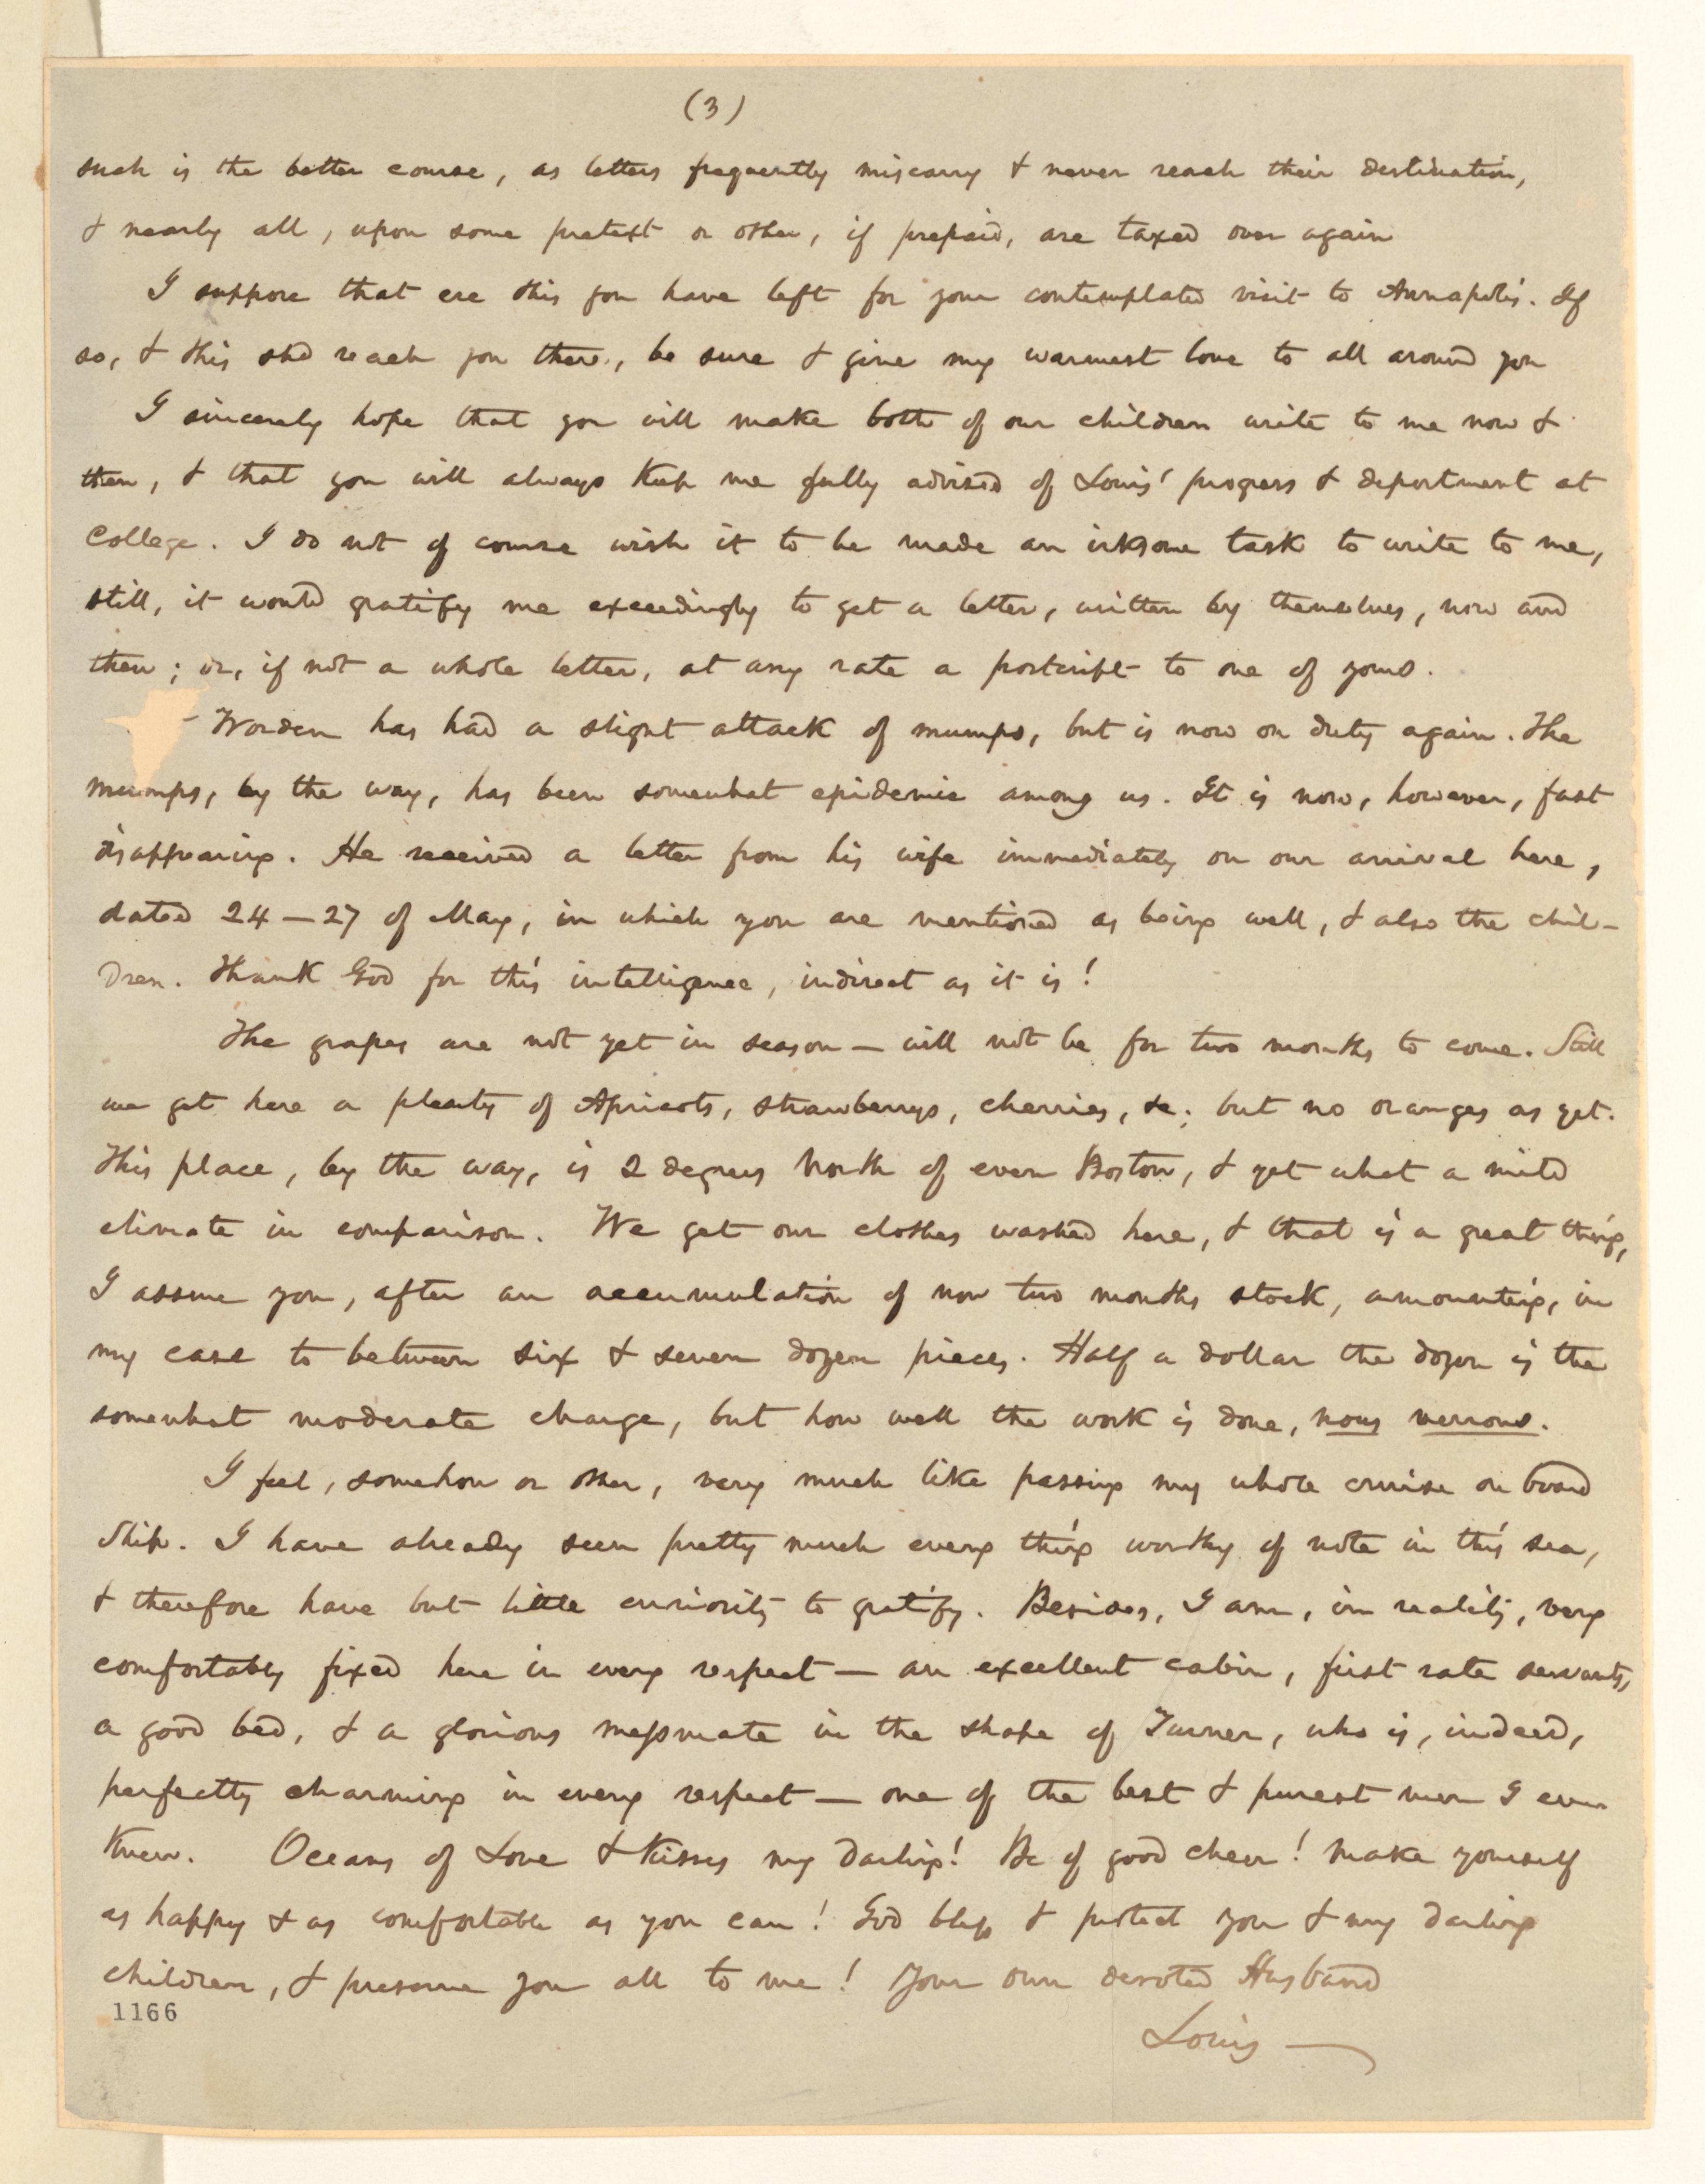 (3)
such is the better course, as letters frequently miscarry & never reach their destination,
& nearly all, upon some pretext or other, if prepaid, are taxed over again
I suppose that ere this you have left for your contemplated visit to Annapolis. If
so, & this shd reach you there, be sure & give my warmest love to all around you
I sincerely hope that you will make both of our children write to me now &
then, & that you will always keep me fully advised of Louis' progress & deportment at
College. I do not of course wish it to be made an irksome task to write to me,
still, it would gratify me exceedingly to get a letter, written by themselves, now and
then; or, if not a whole letter, at any rate a postcript to one of yours.
- Worden has had a slight attack of mumps, but is now on duty again. The
mumps, by the way, has been somewhat epidemic among us. It is now, however, fast
disappearing. He received a letter from his wife immediately on our arrival here,
dated 24-27 of May, in which you are mentioned as being well, & also the chil-
dren. Thank God for this intelligence, indirect as it is!
The grapes are not yet in season - will not be for two months to come. Still
we get here a plenty of Apricots, strawberrys, cherries, &c; but no oranges as yet.
This place, by the way, is 2 degrees North of even Boston, & yet what a mild
climate in comparison. We get our clothes washed here, & that is a great thing,
I assure you, after an accumulation of now two months stock, amounting, in
my case to between six & seven dozen pieces. Half a dollar the dozen is the
somewhat moderate charge, but how well the work is done, nous verrons.
I feel, somehow or other, very much like passing my whole cruise on board
ship. I have already seen pretty much every thing worthy of note in this sea,
& therefore have but little curiosity to gratify. Besides, I am, in reality, very
comfortably fixed here in every respect - an excellent cabin, first rate servants,
a good bed, & a glorious messmate in the shape of Turner, who is, indeed,
perfectly charming in every respect - one of the best & purest men I ever
knew. Oceans of Love & Kisses my darling! Be of good cheer! Make yourself
as happy & as comfortable as you can! God bless & protect you & my darling
children, & preserve you all to me! Your own devoted Husband
Louis
1166